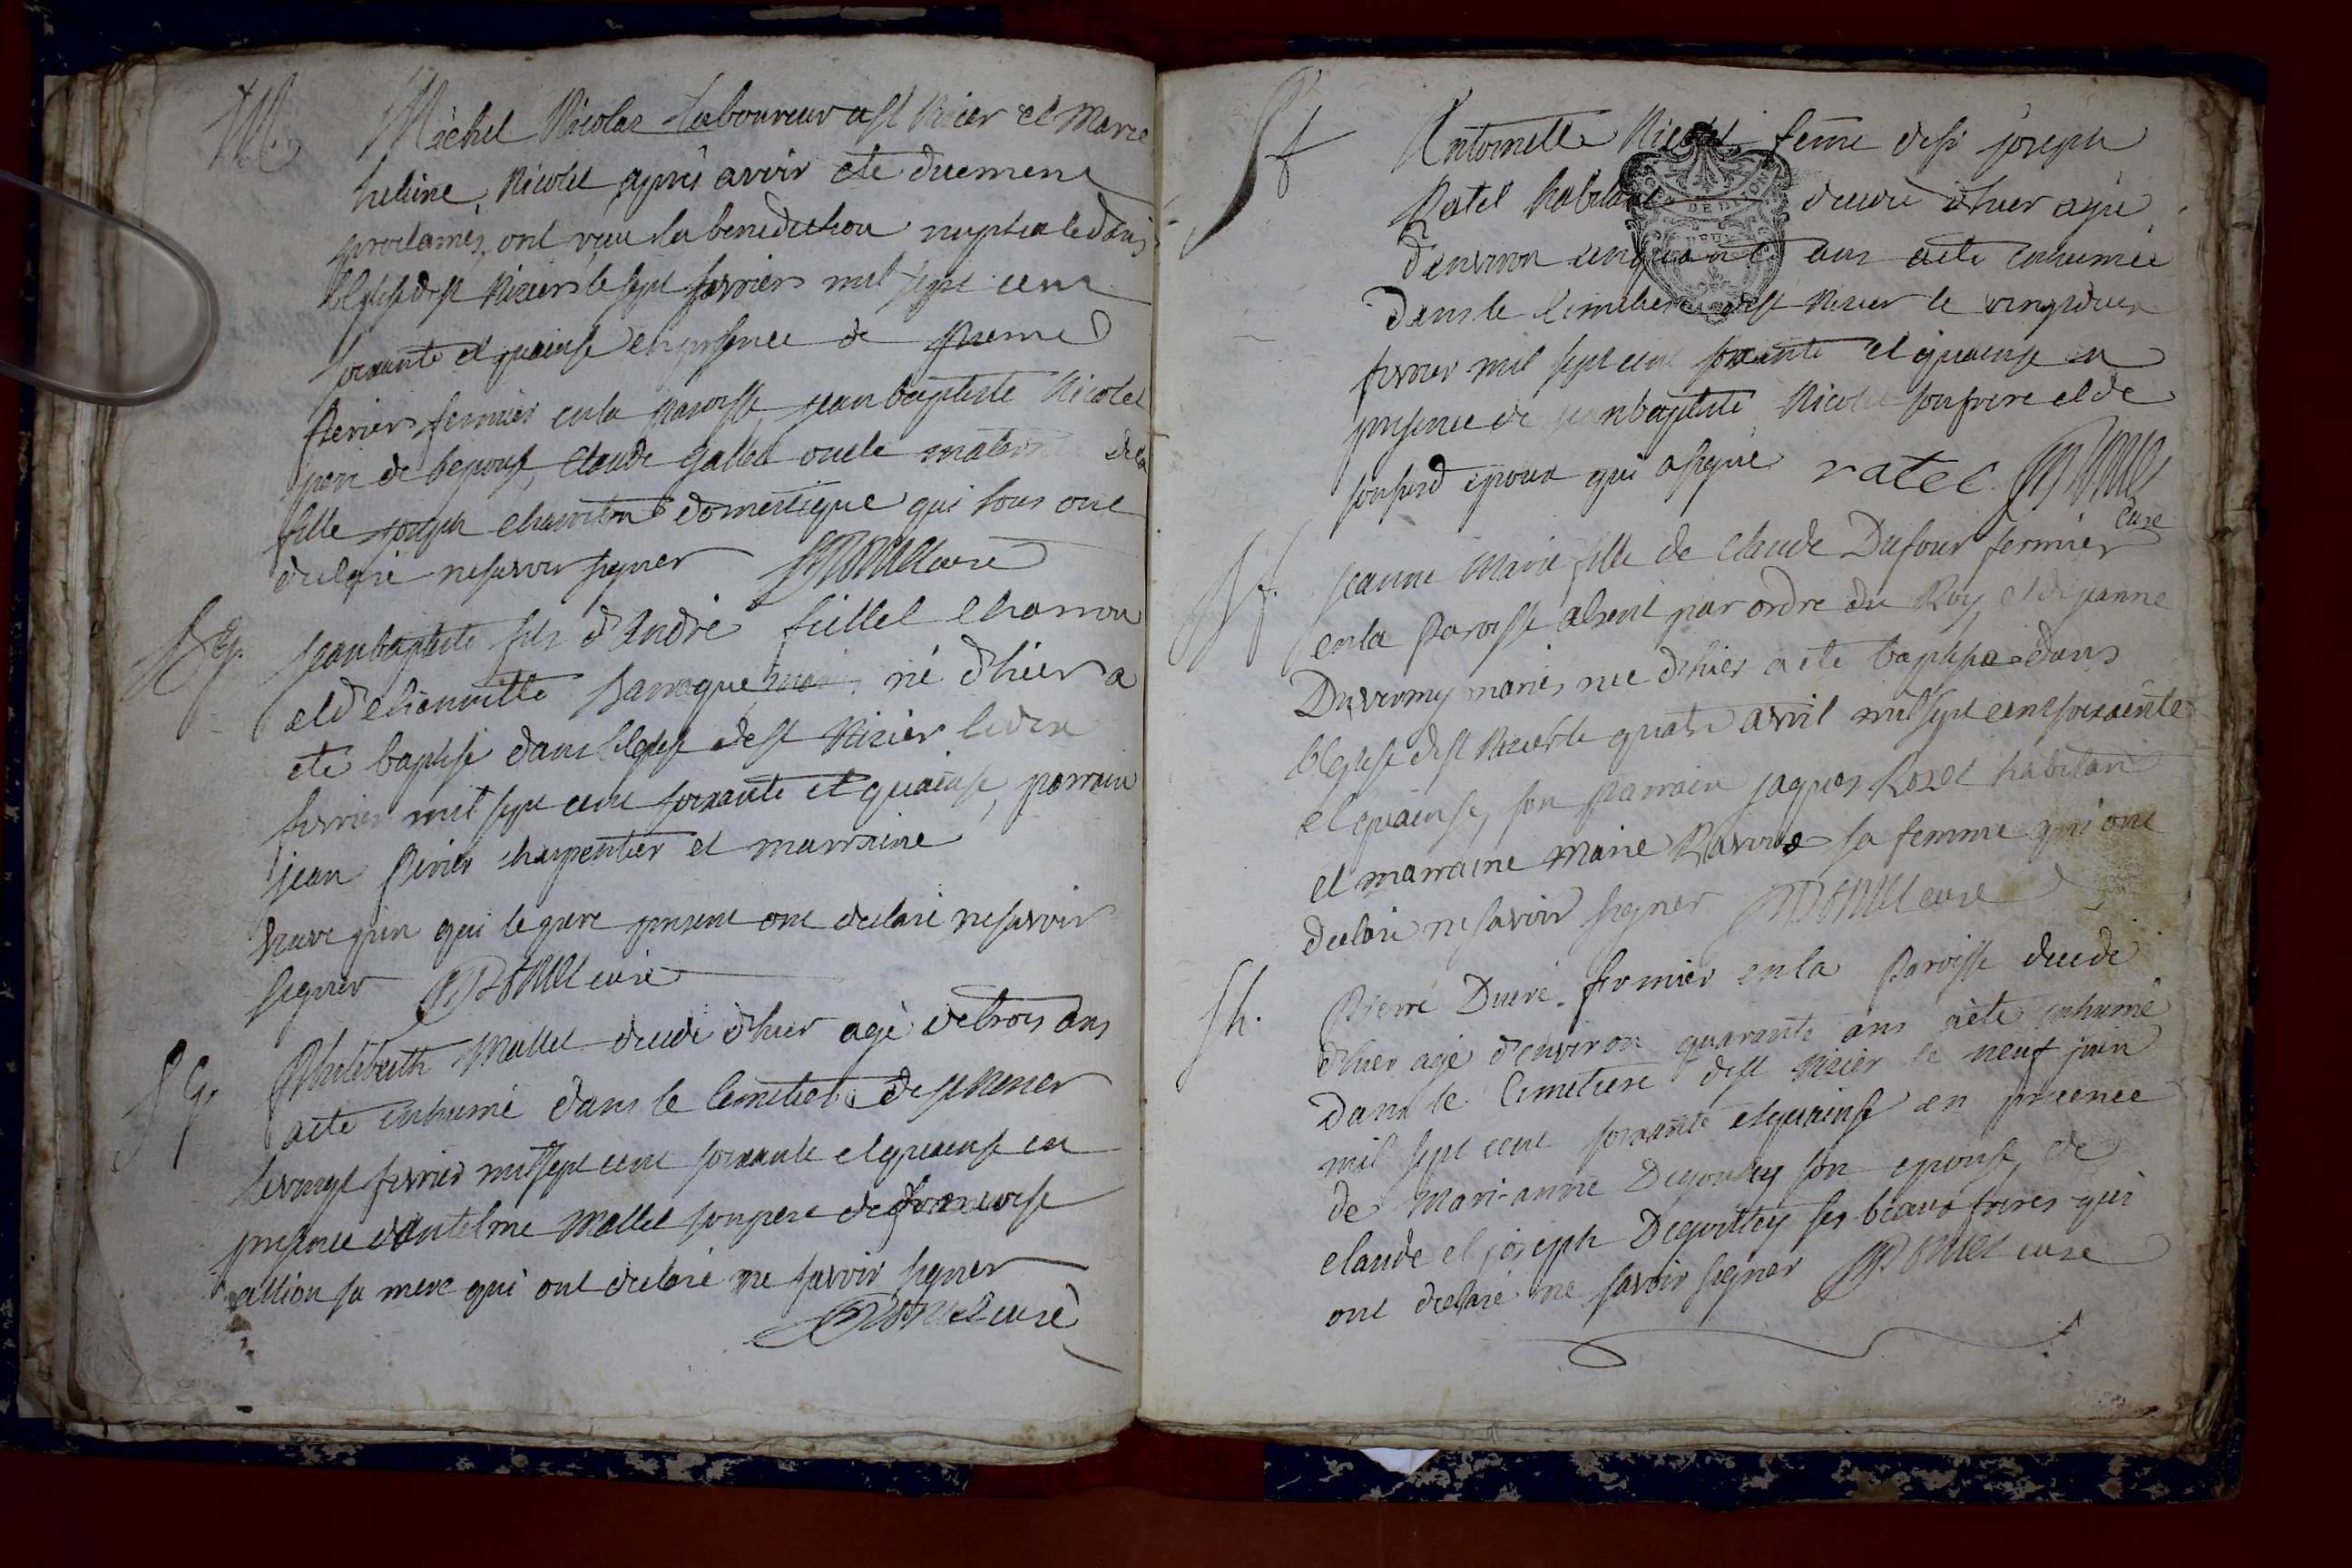 M.
Michel Nicolas laboureur a st Nizier et Marie
heleine Nicolet après avoir eté duement
proclamés, ont reçu la benediction nuptiale dans
l'Eglise de st Nizier le sept fevrier mil sept cent
soixante et quainse en presence de pierre
perier fermier en la paroisse, jean baptiste Nicolet
pere de l'epouse, Claude Gallet oncle maternel de la
fille joseph domestique qui tous ont
declaré ne savoir signer curé
jean baptiste fils d'André charron
et d'etiennette né d'hier a
eté baptisé dans l'eglise de st Nizier le dix
fevrier mil sept cent soixante et quainse, parrain
jean perier charpentier et marraine
qui le pere present ont declaré ne savoir
signer curé
Philiberth Mallet decedé d'hier agé de trois ans
a eté inhumé dans le Cemetiere de st Nizier
le vingt fevrier mil sept cent soixante et quainse en
presence d'Antelme Mallet son pere de francoise
sa mere qui ont declaré ne savoir signer
curé
Antoinette Nicolet feme de sr joseph
Ratel habitant decedé d'hier agée
d'environ cinquante ans a eté inhumée
dans le Cimetiere de st Nizier le vingt deux
fevrier mil sept cent soixante et quainse en
presence de jean baptiste Nicolet son frere et de
sousd epoux qui a signé ratel
curé
jeanne Marie fille de Claude Dufour fermier
en la paroisse absent par ordre du Roy, et de jeanne
mariés née d'hier a eté baptisée dans
l'Eglise de st Nizier le quatre avril mil sept cent soixante
et quainse, son parrain jaques Rozet habitant
et marraine Marie sa femme qui ont
declaré ne savoir signer curé
Sh.
Pierre Ducré fermier en la paroisse decedé
d'hier agé d'environ quarante ans a eté inhumé
dans le Cimetiere de st Nizier le neuf juin
mil sept cent soixante et quainse en presence
de Mari-anne Degouttey son epouse, de
claude et joseph Degouttey ses beaux freres qui
ont declaré ne savoir signer curé